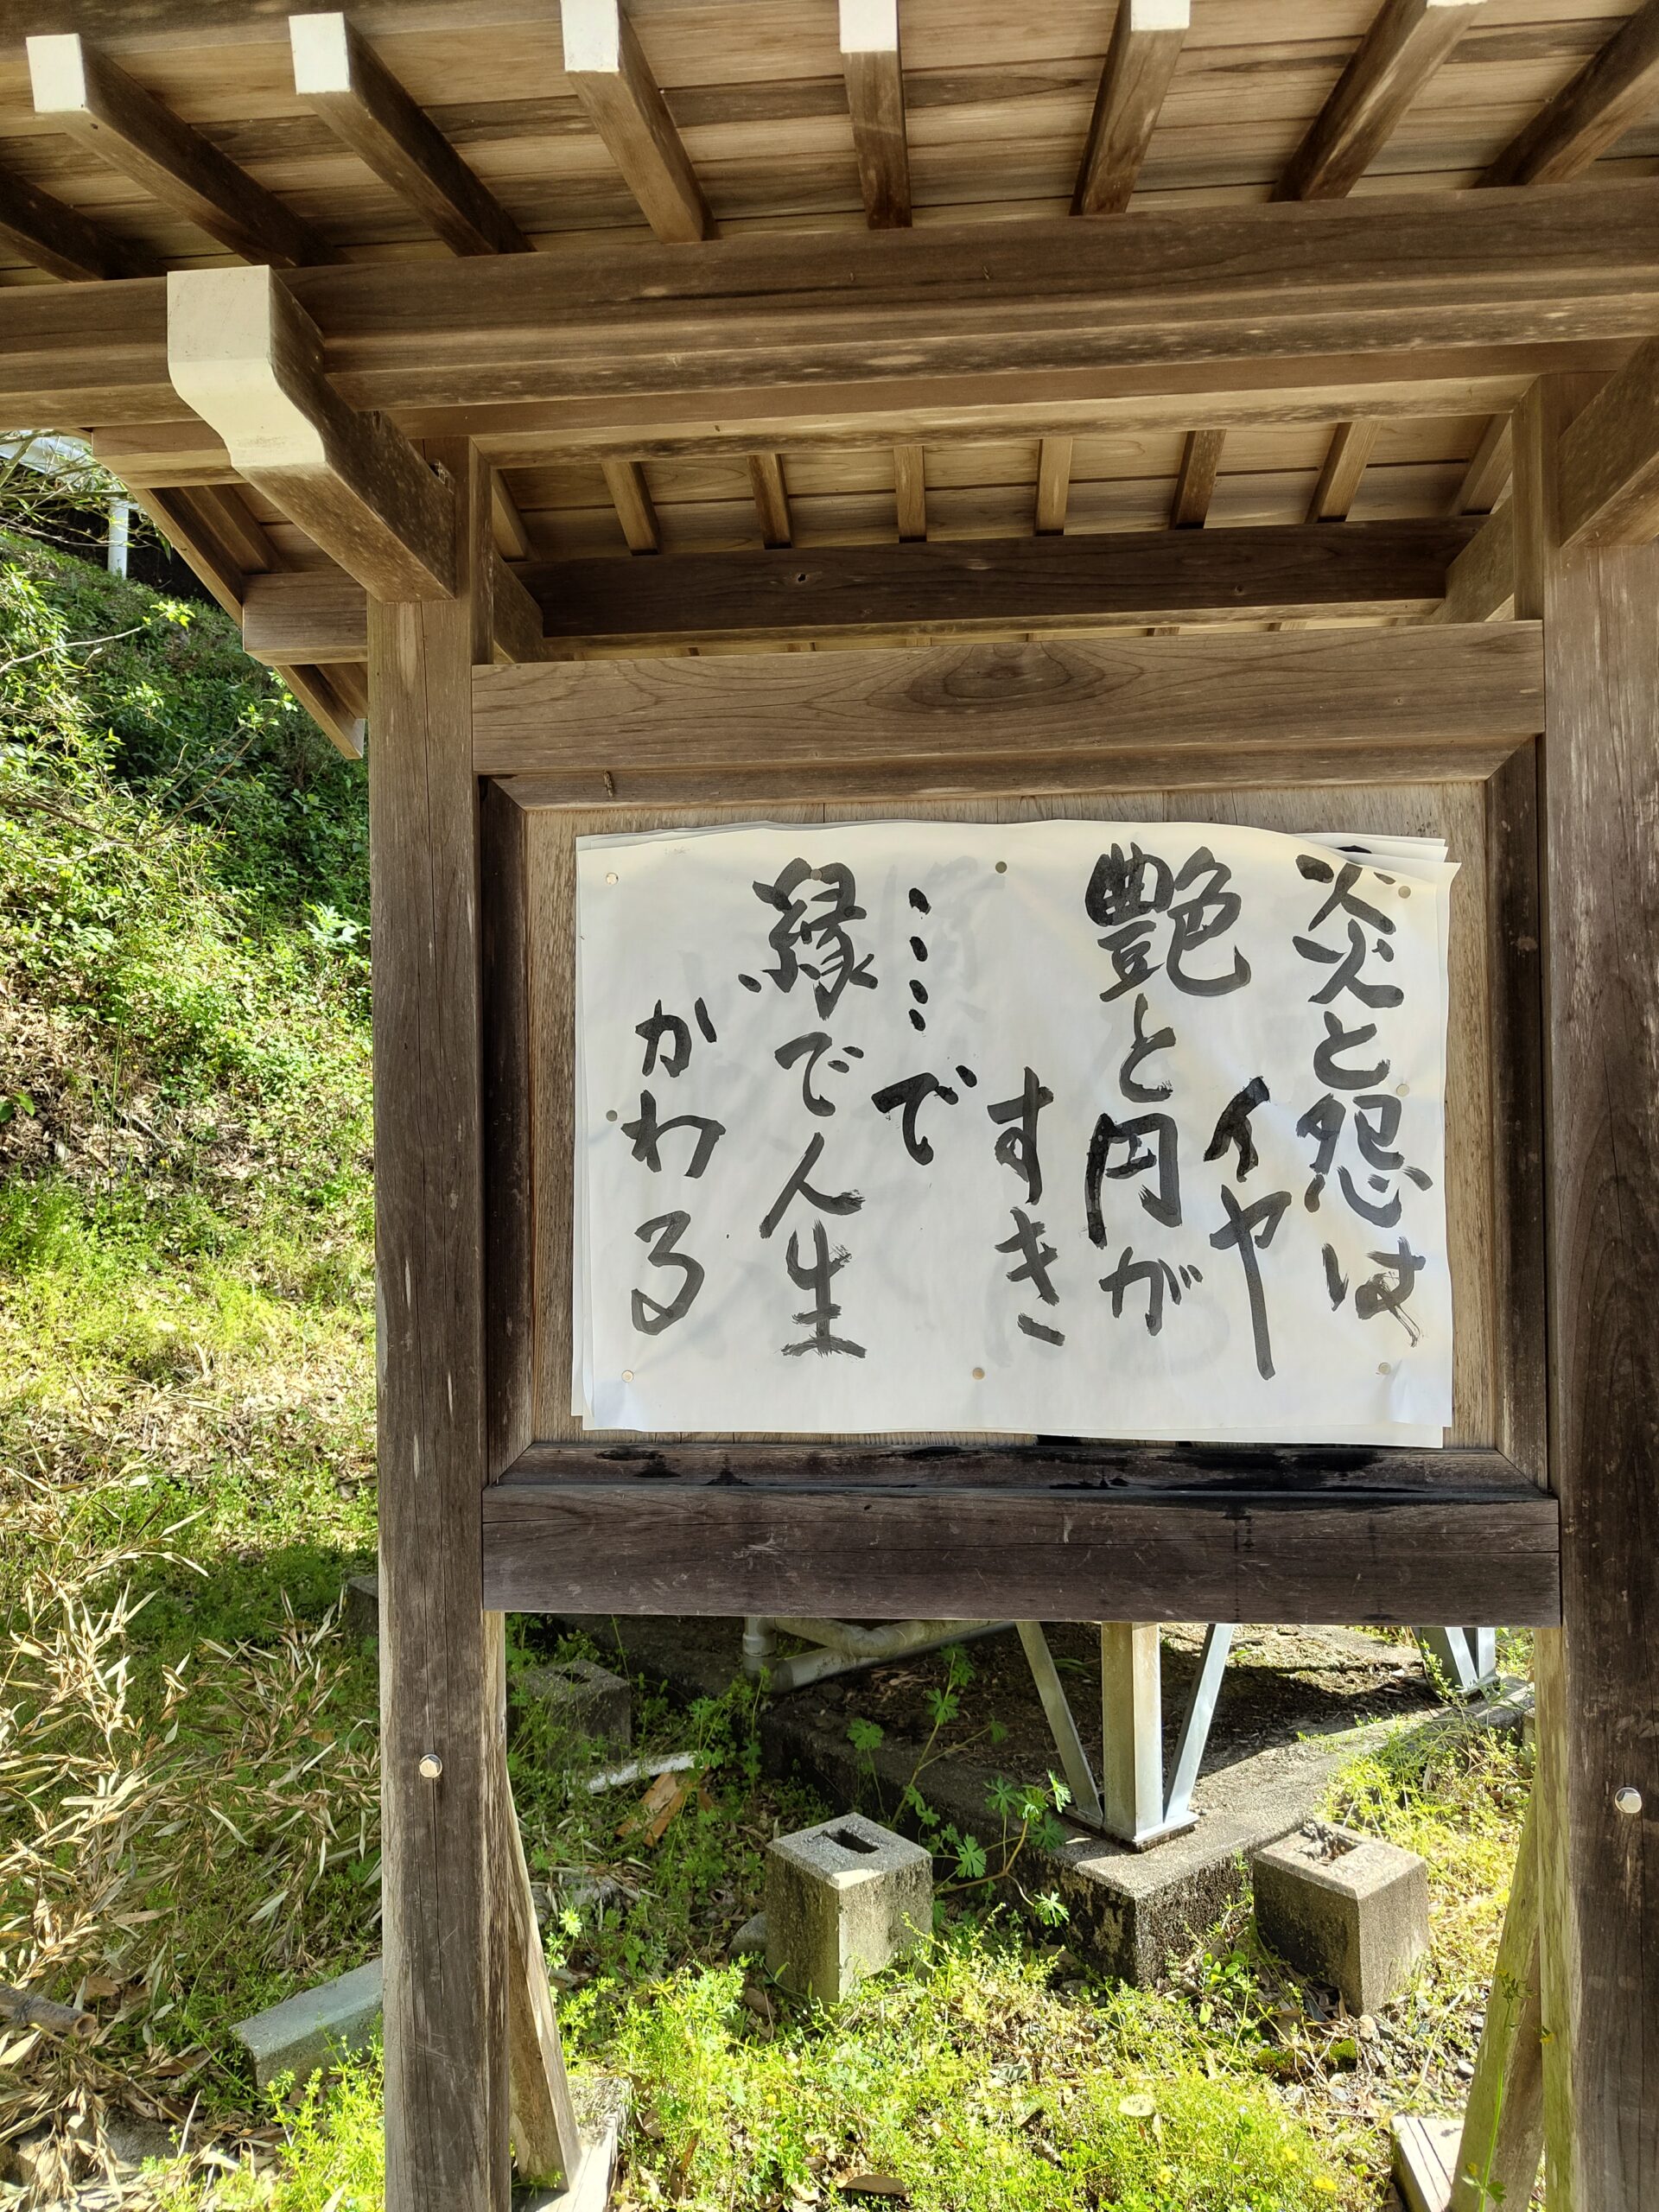 炎と怨は
イヤ
艶と円が
すき
……で
縁で人生
かわる